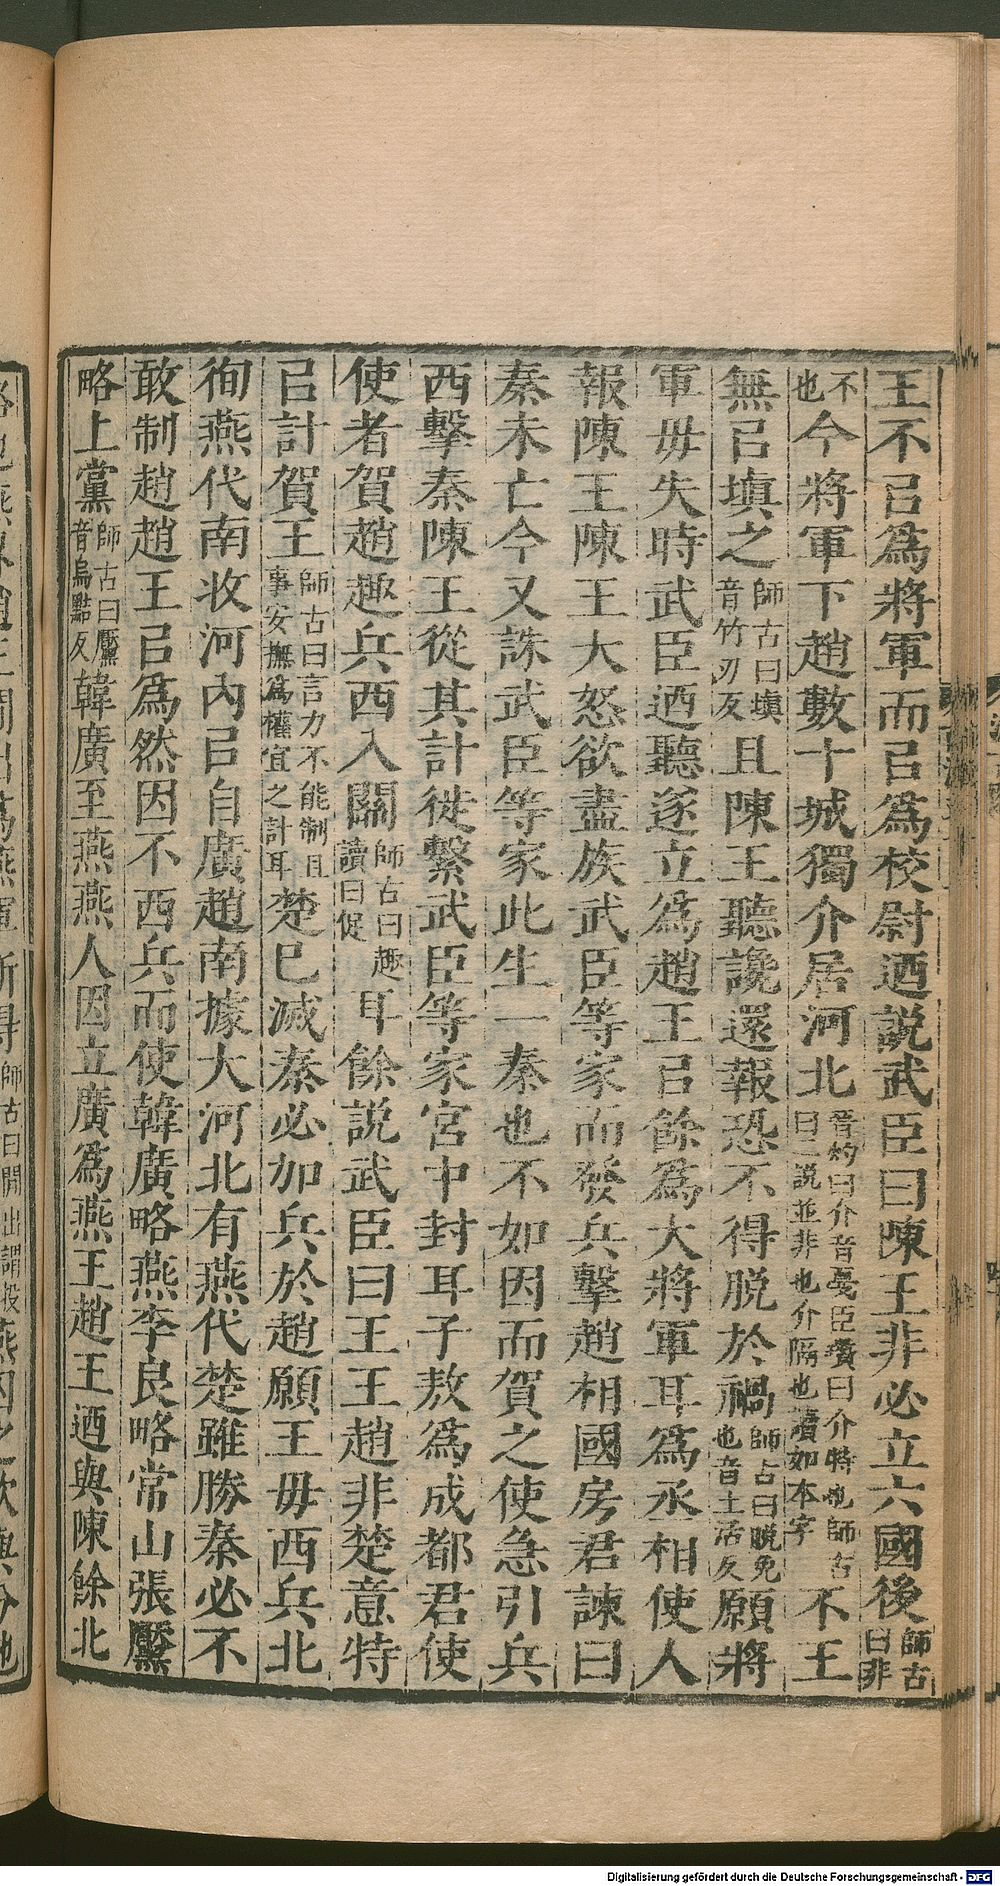 王不㠯爲將軍而㠯爲校尉迺説武臣曰陳王非必立六國後師古曰非
不也今將軍下趙數十城獨介居河北晉灼曰介音戞臣瓚曰介特也師古曰二説並非也介隔也讀如本字不王
無㠯塡之師古曰塡音竹刃反且陳王聽讒還報恐不得脱於禍師古曰脱免也音土活反願將
軍毋失時武臣迺聽遂立爲趙王㠯餘爲大將軍耳爲丞相使人
報陳王陳王大怒欲盡族武臣等家而發兵擊趙相國房君諫曰
秦未亡今又誅武臣等家此生一秦也不如因而賀之使急引兵
西擊秦陳王從其計徙繫武臣等家宮中封耳子敖爲成都君使
使者賀趙趣兵西入關師古曰趣讀曰促耳餘説武臣曰王王趙非楚意特
㠯計賀王師古曰言力不能制且事安撫爲權宜之計耳楚巳滅秦必加兵於趙願王毋西兵北
徇燕代南收河內㠯自廣趙南據大河北有燕代楚雖勝秦必不
敢制趙趙王㠯爲然因不西兵而使韓廣略燕李良略常山張黶
略上黨師古曰黶音烏點反韓廣至燕燕人因立廣爲燕王趙王迺與陳餘北
Digitalisierung gefördert durch die Deutsche Forschungsgemeinschaft - DFG